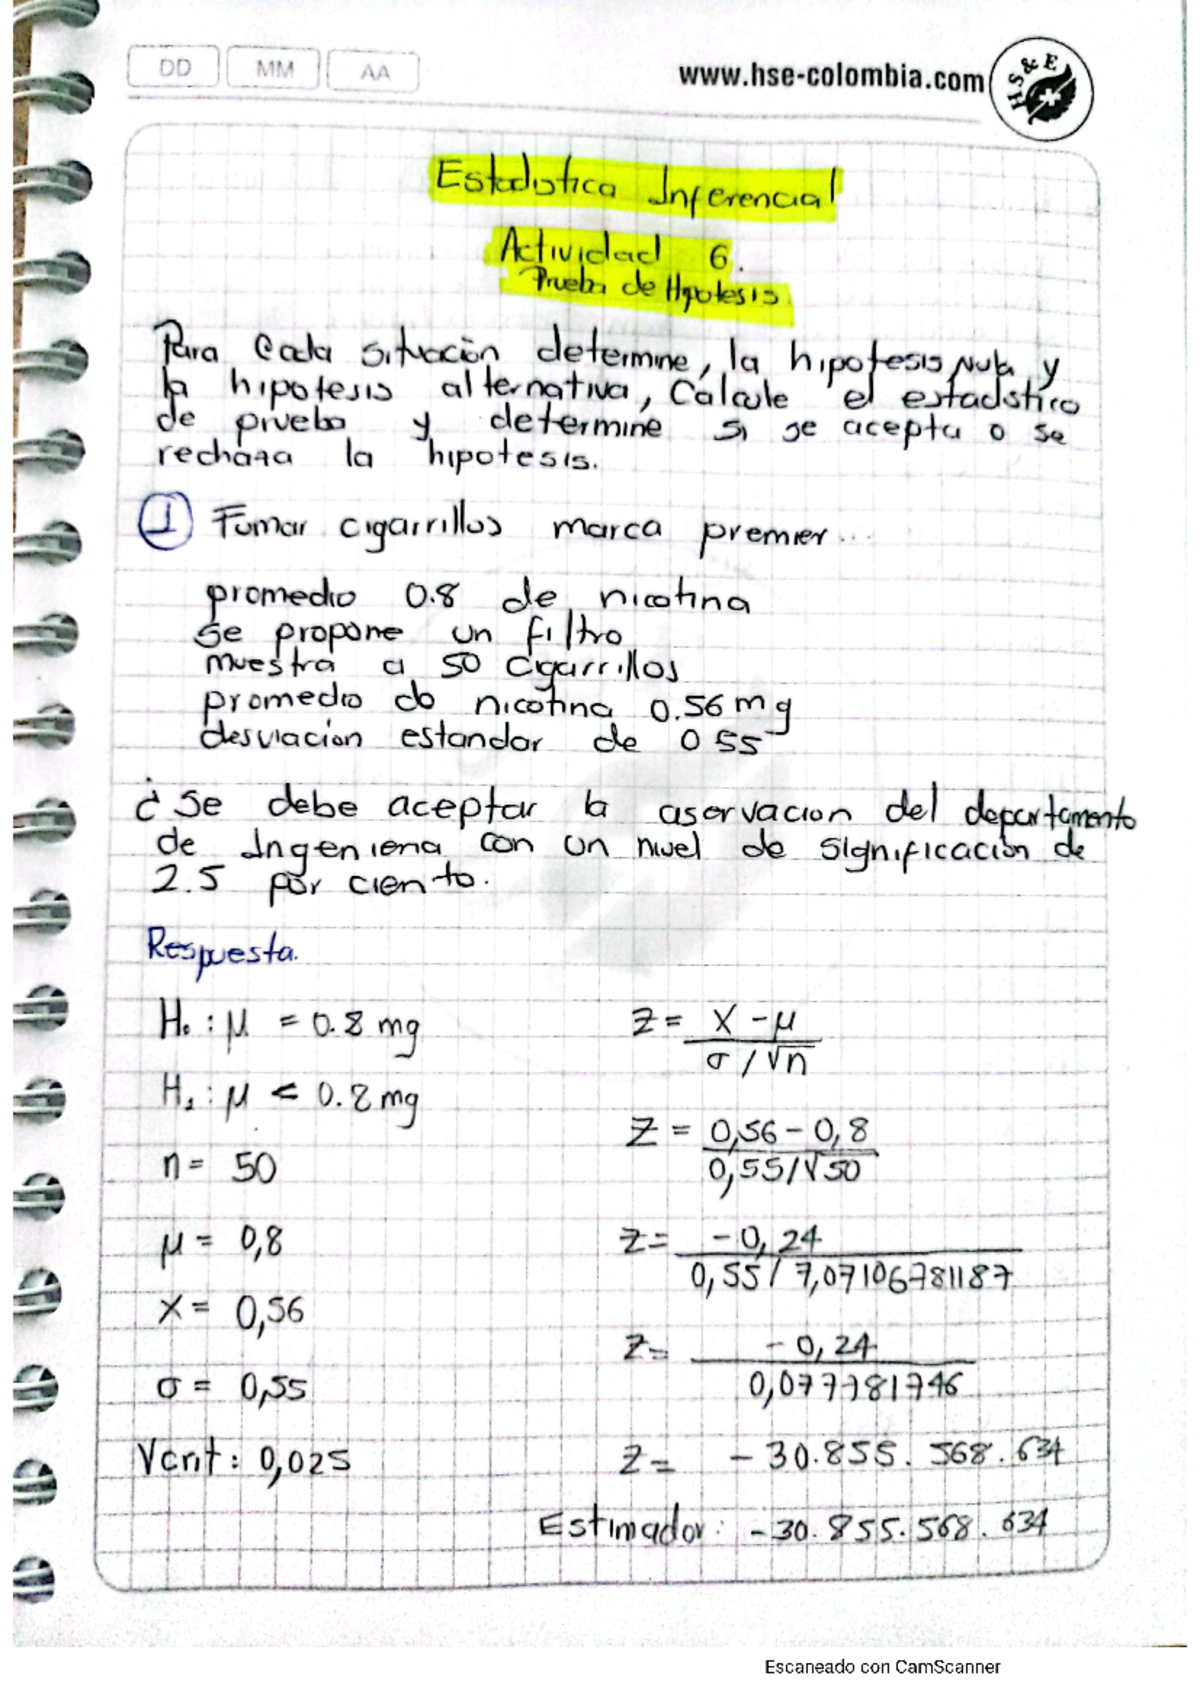 DD MM AA
www.hse-colombia.com
H S & E
Estadistica Inferencial
Actividad 6.
Prueba de Hipotesis.
Para Cada situación determine, la hipotesis Nula y
la hipotesis alternativa, Calcule el estadistico
de prueba y determine si se acepta o se
rechaza la hipotesis.
1 Fumar cigarrillos marca premier...
promedio 0.8 de nicotina
se propone un filtro
muestra a 50 cigarrillos
promedio de nicotina 0.56 mg
desviacion estandar de 0 55
¿ Se debe aceptar la aservacion del departamento
de Ingenieria con un nivel de significación de
2.5 por ciento.
Respuesta.
H₀ : μ = 0.8 mg
H₁ : μ < 0.8 mg
n = 50
μ = 0,8
x = 0,56
σ = 0,55
Vcrit : 0,025
Z = X - μ / σ / √n
Z = 0,56 - 0,8 / 0,55/√50
Z = - 0,24 / 0,55 / 7,07106781187
Z = - 0,24 / 0,077781746
Z = - 30.855.568.634
Estimador: -30.855.568.634
Escaneado con CamScanner